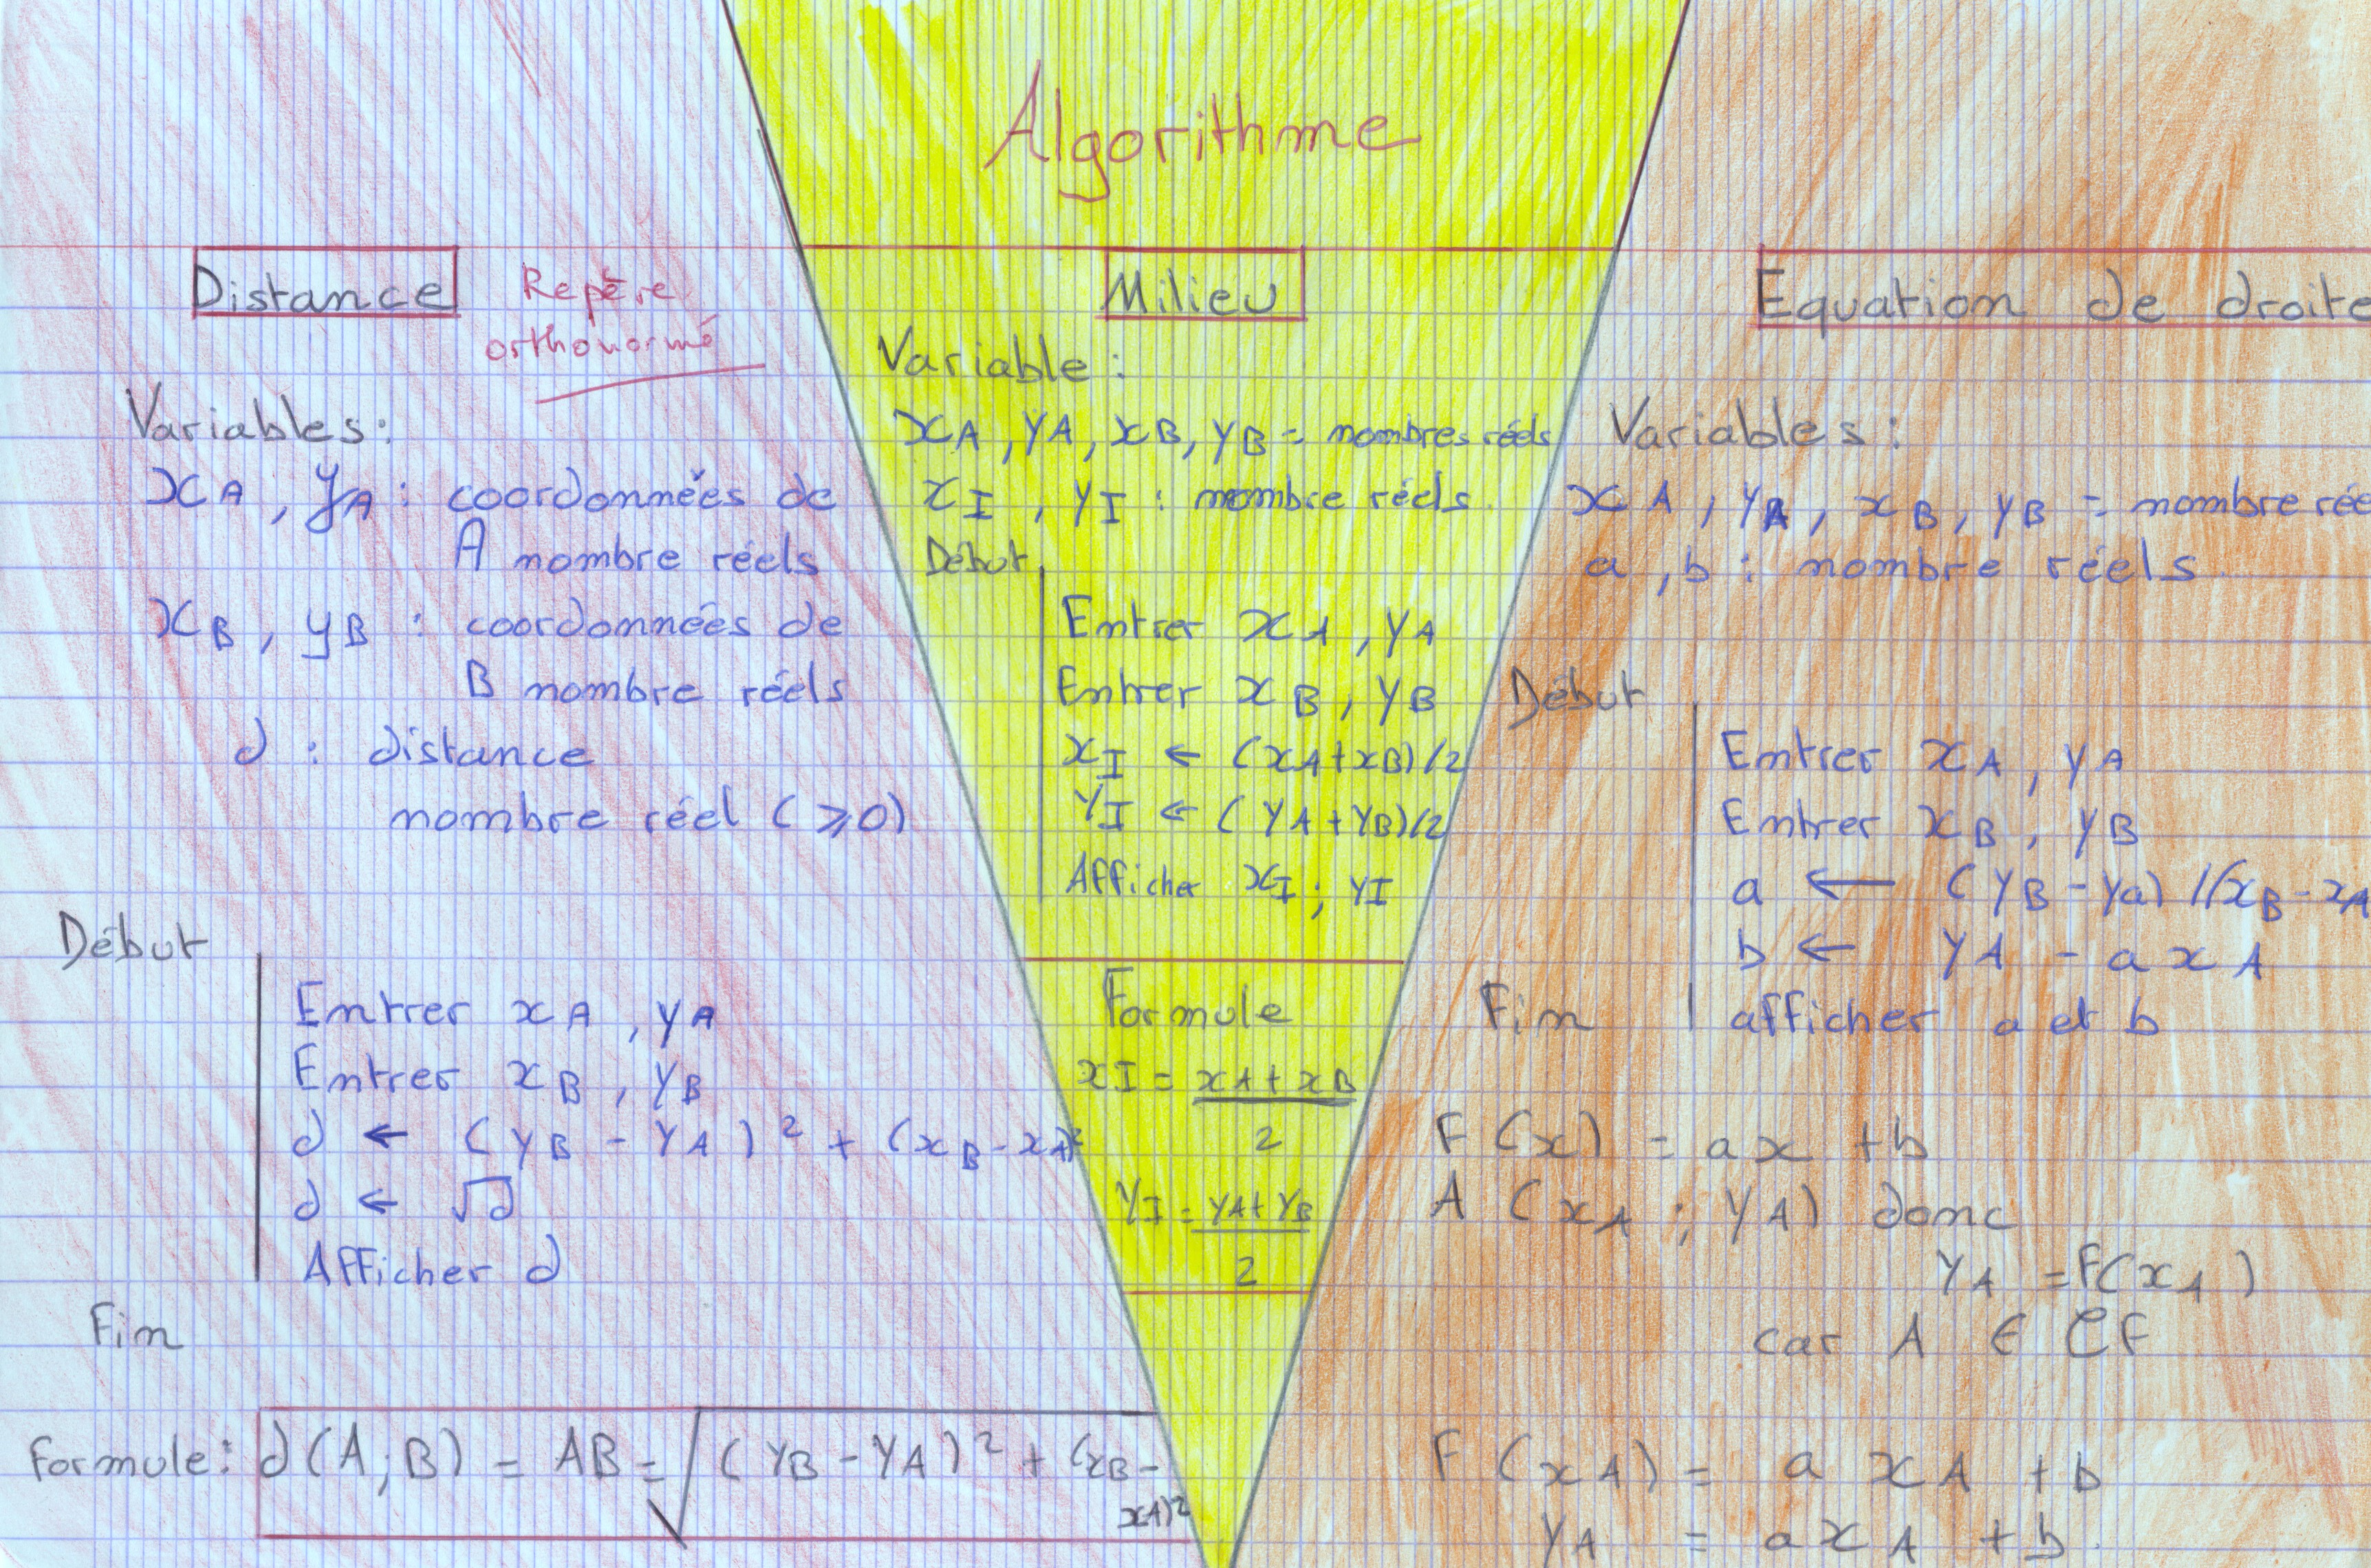 Algorithme
Distance
Repère
orthonormé
Variables:
xA, yA : coordonnées de
A nombre réels
xB, yB : coordonnées de
B nombre réels
d : distance
nombre réel (⩾0)
Début
Entrer xA, yA
Entrer xB, yB
d ← (yB - yA)² + (xB - xA)²
d ← √d
Afficher d
Fin
Formule: d(A;B) = AB = √(yB - yA)² + (xB -
xA)²
Milieu
Variable :
xA, yA, xB, yB = nombres réels
xI, yI : nombre réels.
Début
Entrer xA, yA
Entrer xB, yB
xI ← (xA+xB)/2
yI ← (yA+yB)/2
Afficher xI; yI
Formule
xI = xA + xB
2
yI = yA + yB
2
Equation de droite
Variables :
xA, yA, xB, yB = nombre rée
a, b : nombre réels.
Début
Entrer xA, yA
Entrer xB, yB
a ← (yB - ya) /(xB - xA
b ← yA - axA
afficher a et b
Fin
F(x) = ax + b
A (xA ; yA) donc
yA = F(xA)
car A ∈ CF
F(xA) = a xA + b
yA = axA + b.